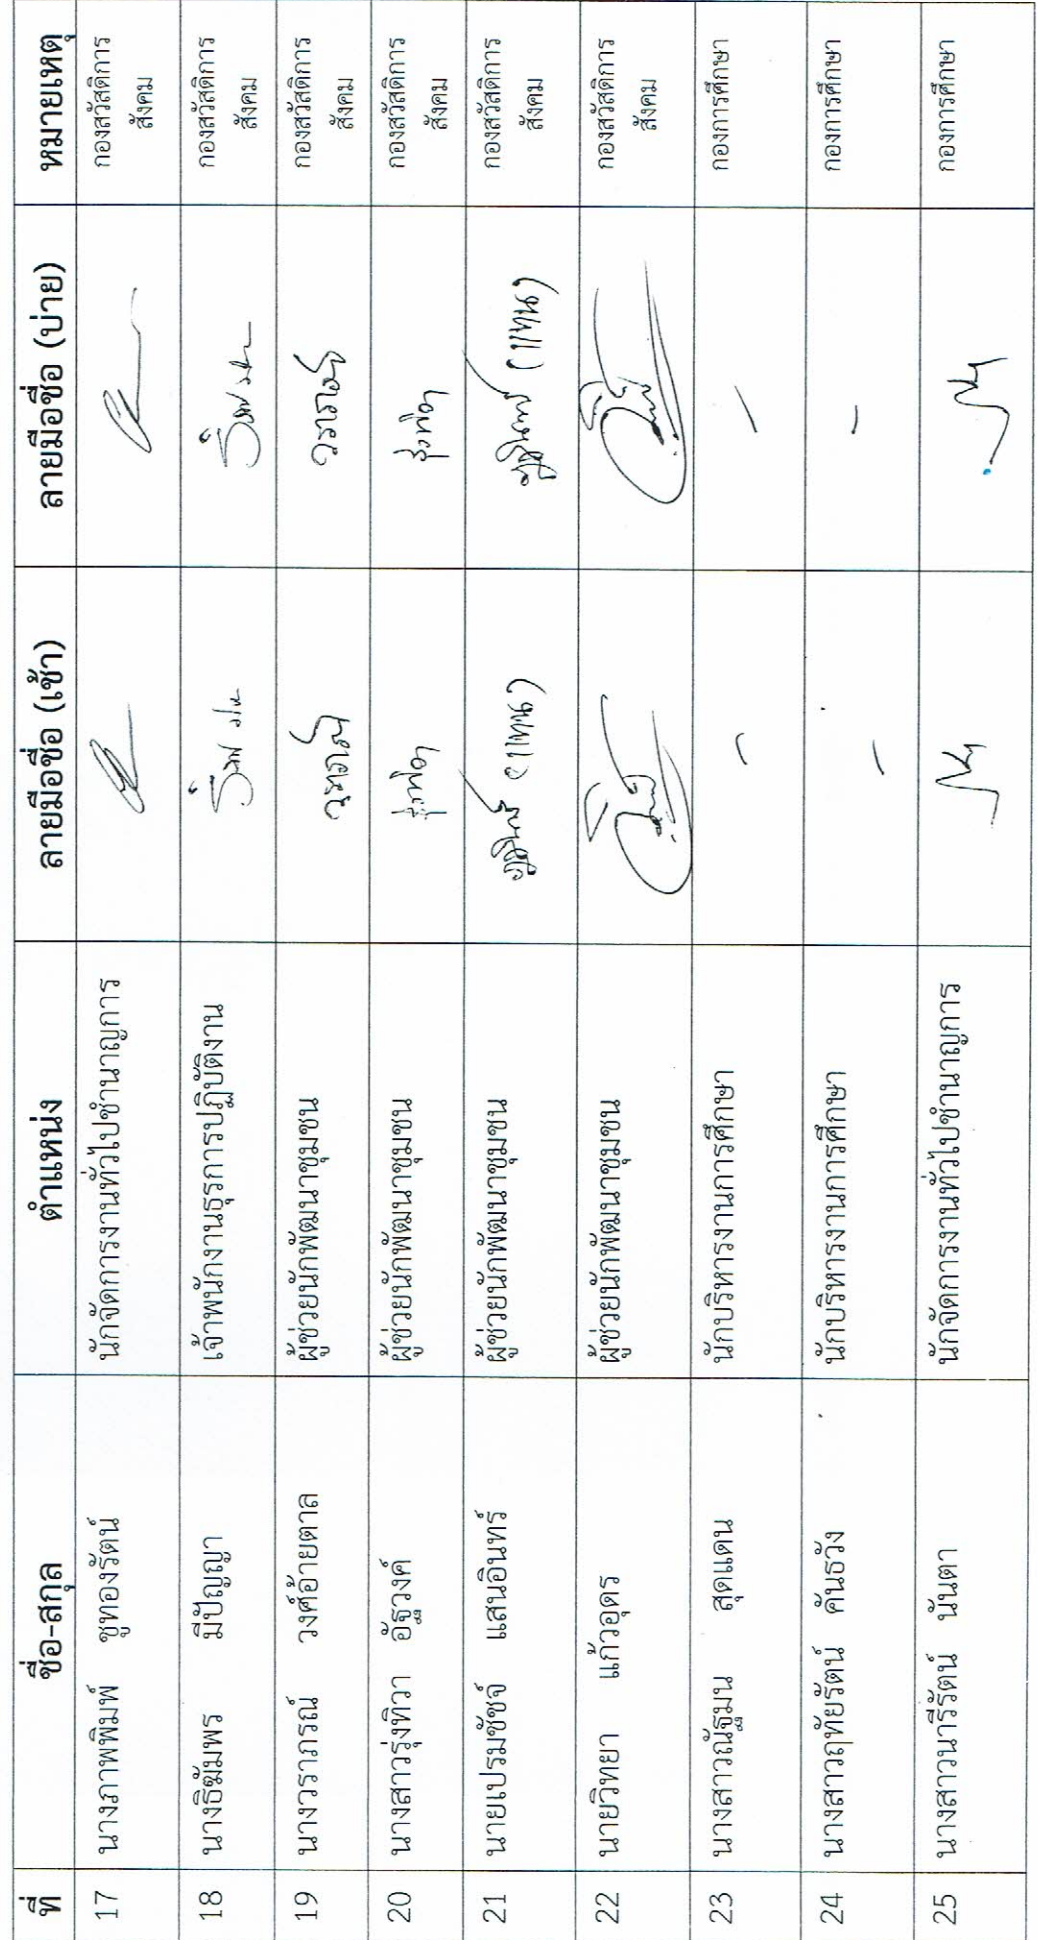 ที่ ชื่อ-สกุล ตำแหน่ง ลายมือชื่อ (เช้า) ลายมือชื่อ (บ่าย) หมายเหตุ
17 นางภาพพิมพ์ ชูทองรัตน์ นักจัดการงานทั่วไปชำนาญการ กองสวัสดิการ
สังคม
18 นางธิฆัมพร มีปัญญา เจ้าพนักงานธุรการปฏิบัติงาน กองสวัสดิการ
สังคม
19 นางวราภรณ์ วงศ์อ้ายตาล ผู้ช่วยนักพัฒนาชุมชน วราภรณ์ วราภรณ์ กองสวัสดิการ
สังคม
20 นางสาวรุ่งทิวา อัฐวงค์ ผู้ช่วยนักพัฒนาชุมชน รุ่งทิวา รุ่งทิวา กองสวัสดิการ
สังคม
21 นายเปรมชัชจ์ แสนอินทร์ ผู้ช่วยนักพัฒนาชุมชน (แทน) (แทน) กองสวัสดิการ
สังคม
22 นายวิทยา แก้วอุดร ผู้ช่วยนักพัฒนาชุมชน กองสวัสดิการ
สังคม
23 นางสาวณัฐมน สุดแดน นักบริหารงานการศึกษา - - กองการศึกษา
24 นางสาวฤทัยรัตน์ คันธวัง นักบริหารงานการศึกษา - - กองการศึกษา
25 นางสาวนารีรัตน์ นันตา นักจัดการงานทั่วไปชำนาญการ กองการศึกษา